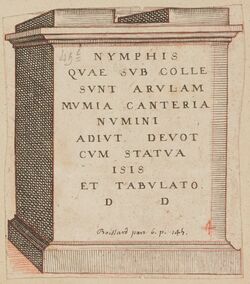 NYMPHIS
QUAE SUB COLLE
SUNT ARULAM
MUMIA CANTERIA
NUMINI
ADIUT. DEVOT
CUM STATUA
ISIS
ET TABULATO.
D D
Boissard pars 6. p. 145.
4